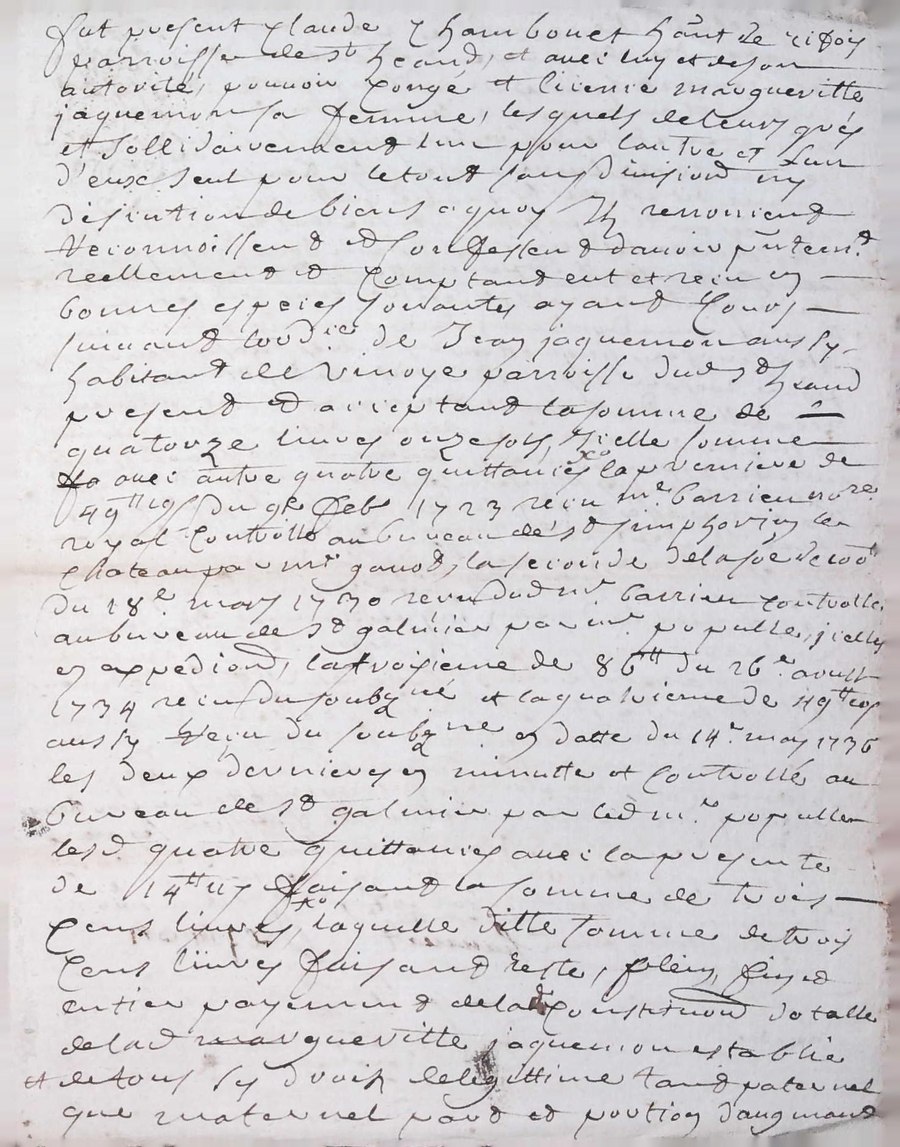 fut present Claude Chambouet hãnt de
parroisse de St heand, et avec luy et de son
autorité, pouvoir congé et licence margueritte
jaquemon sa femme, lesquels de leurs grés
et sollidairement l'un pour l'autre et l'un
d'eux seul pour le tout sans division ny
discution de biens a quoy Ils renoncent
Reconnoissent et Confessent d'avoir
reellement et Comptant eut et receu en
bonnes especes sonantes ayant Cours
suivant de Jean jaquemon aussy
habitant de vinoye parroisse dud St heand
present et acceptant la somme de
quatorze livres onze sols, Icelle somme
avec autre quatre quittances la premiere de
49tt 19s du 9e feb 1723 receu me barrieu nore
royal Controllé au bureau de St simphorien le
Chateau par mr ganod, la seconde de la
du 18e mars 1730 receu dud mr barrieu Controllé
au bureau de St galmier par mr populle, jcelles
en expedion, la troisieme de 86tt du 26e aoust
1734 receu du soubzné et la quatrieme de 49tt
aussy Receu du soubzné en datte du 14e may 1736
les deux dernieres en minutte et Controllé au
bureau de St galmier par led mr populle
lesd quatre quittances avec la presente
de 14tt 11s faisant la somme de trois
Cens livres, laquelle ditte somme de trois
Cens livres faisant reste, plein, fin et
entier payement de lad Constitution dotalle
de lad margueritte jaquemon establie
et de tous sy droits de legittime tant paternel
que maternel part et portion d'augmant